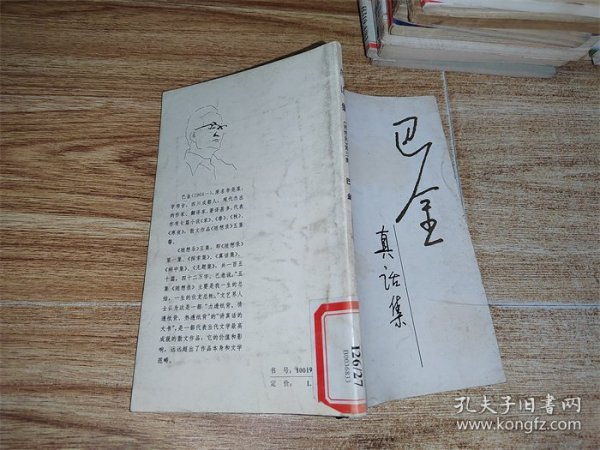 巴金
真话集
巴金(1904—),原名李尧棠,
字芾甘,四川成都人。现代杰出
的作家、翻译家。著译甚多,代表
作有长篇小说《家》、《春》、《秋》、
《寒夜》,散文作品《随想录》五集
等。
《随想录》五集,即《随想录》
第一集、《探索集》、《真话集》、
《病中集》、《无题集》,共一百五
十篇,四十二万字。巴老说,“五
集《随想录》主要是我一生的总
结,一生的收支总帐。”文艺界人
士认为这是一部“力透纸背,情
透纸背,热透纸背”的“讲真话的
大书”,是一部代表当代文学最高
成就的散文作品,它的价值和影
响,远远超出了作品本身和文学
范畴。
书 号:10019
定 价: 1.
126/27
孔夫子旧书网
www.kongfz.com